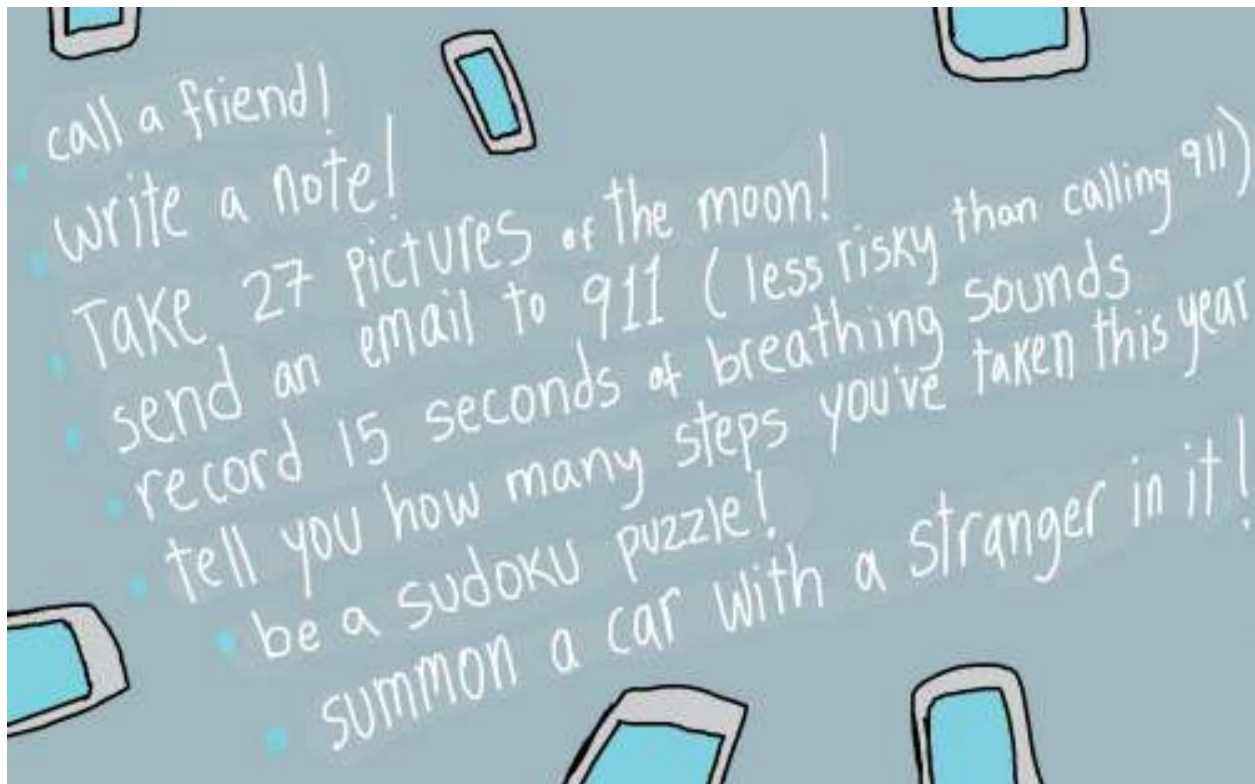 call a friend!
write a note!
Take 27 pictures of the moon!
send an email to 911 (less risky than calling 911)
record 15 seconds of breathing sounds
tell you how many steps you've taken this year
be a sudoku puzzle!
summon a car with a stranger in it!